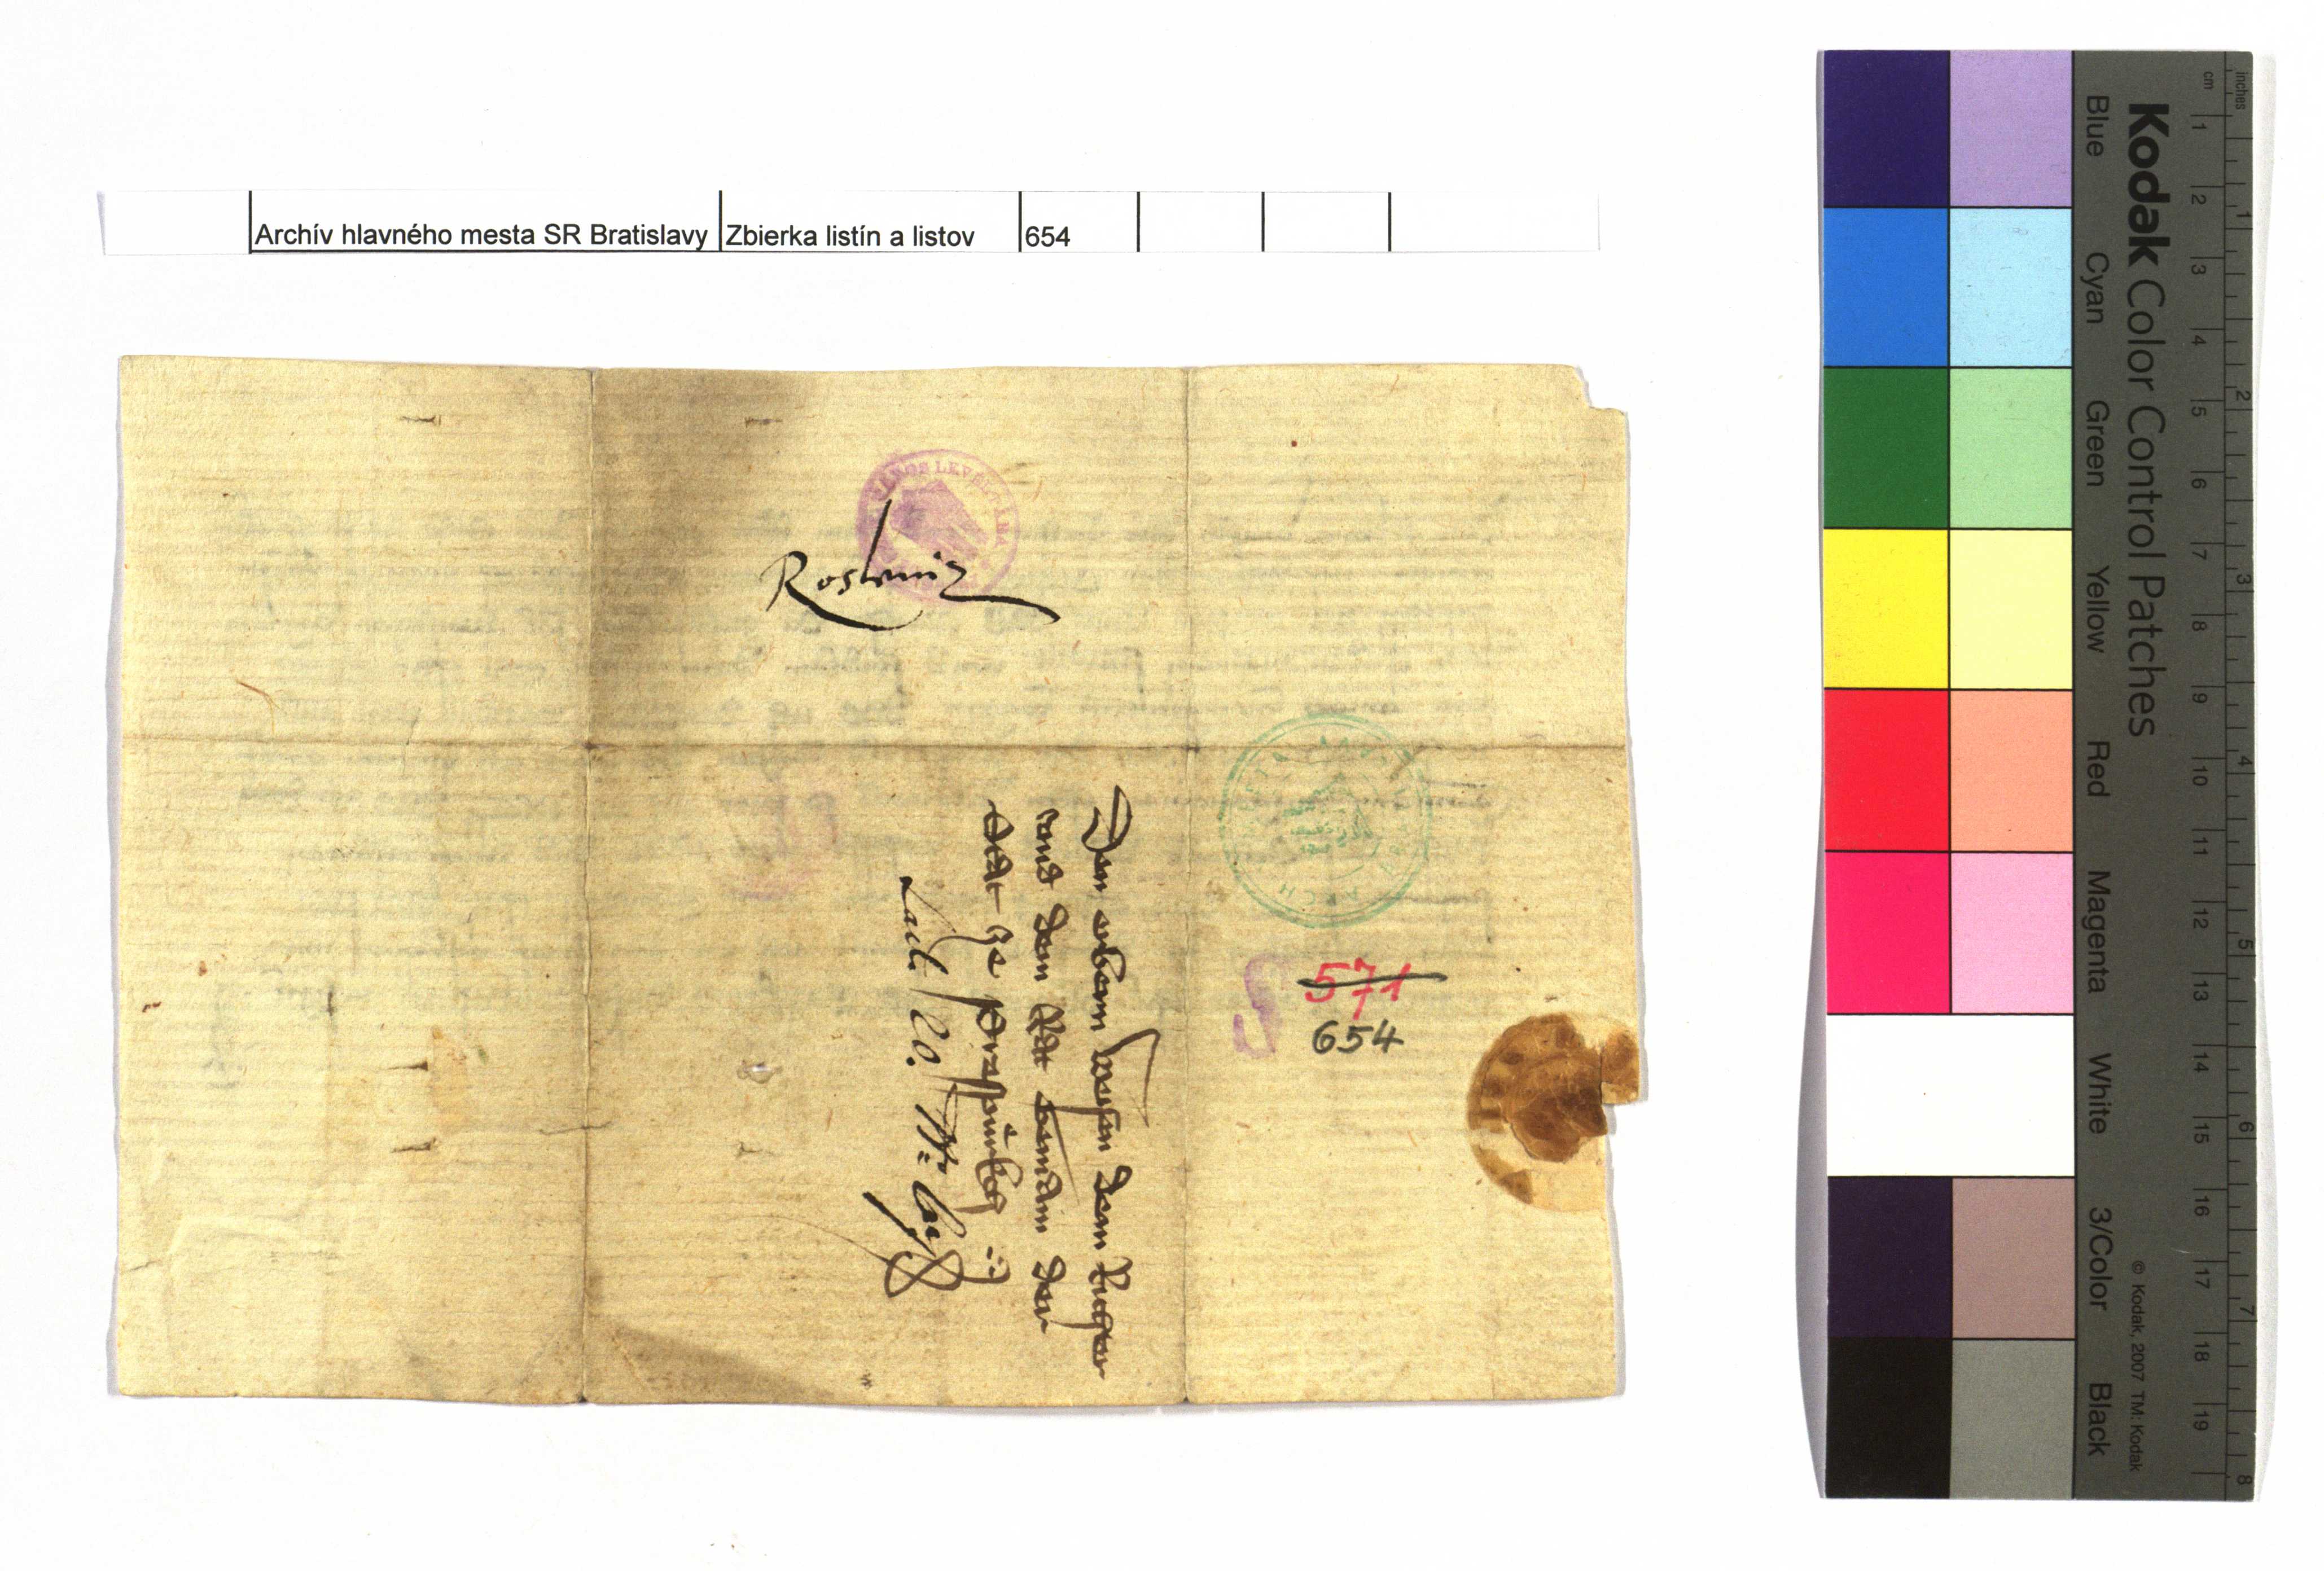 Archív hlavného mesta SR Bratislavy Zbierka listín a listov 654
VÁROS LEVÉLTÁRA
Den erbern weysen dem Richter
vnd dem Rat der
Stat ze
Lad. 20. Nr.
571
654
Kodak Color Control Patches
Blue Cyan Green Yellow Red Magenta White 3/Color Black
© Kodak, 2007 TM: Kodak
cm 1 2 3 4 5 6 7 8 9 10 11 12 13 14 15 16 17 18 19
inches 1 2 3 4 5 6 7 8